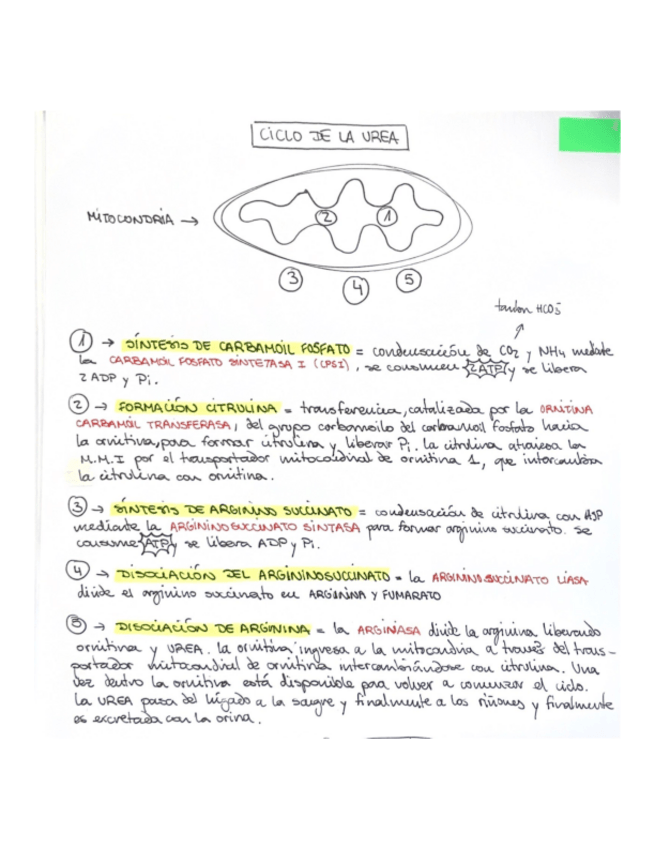 CICLO DE LA UREA
MITOCONDRIA →
2 1
3 4 5
tambien HCO3
1 → SÍNTESIS DE CARBAMOIL FOSFATO = condensación de CO2 y NH4 mediante
la CARBAMOIL FOSFATO SINTETASA I (CPSI), se consumen 2ATP y se libera
2 ADP y Pi.
2 → FORMACIÓN CITRULINA = transferencia, catalizada por la ORNITINA
CARBAMOIL TRANSFERASA, del grupo carbamoilo del carbamoil fosfato hacia
la ornitina, para formar citrulina y liberar Pi. La citrulina atraviesa la
M.M.I por el transportador mitocondrial de ornitina 1, que intercambia
la citrulina con ornitina.
3 → SÍNTESIS DE ARGININO SUCCINATO = condensación de citrulina con ASP
mediante la ARGININOSUCCINATO SINTASA para formar arginino succinato. Se
consume ATP y se libera ADP y Pi.
4 → DISOCIACIÓN DEL ARGININOSUCCINATO = la ARGININOSUCCINATO LIASA
divide el arginino succinato en ARGININA Y FUMARATO
5 → DISOCIACIÓN DE ARGININA = la ARGINASA divide la arginina liberando
ornitina y UREA. La ornitina ingresa a la mitocondria a través del trans-
portador mitocondrial de ornitina intercambiándose con citrulina. Una
vez dentro la ornitina está disponible para volver a comenzar el ciclo.
La UREA pasa del hígado a la sangre y finalmente a los riñones y finalmente
es excretada con la orina.